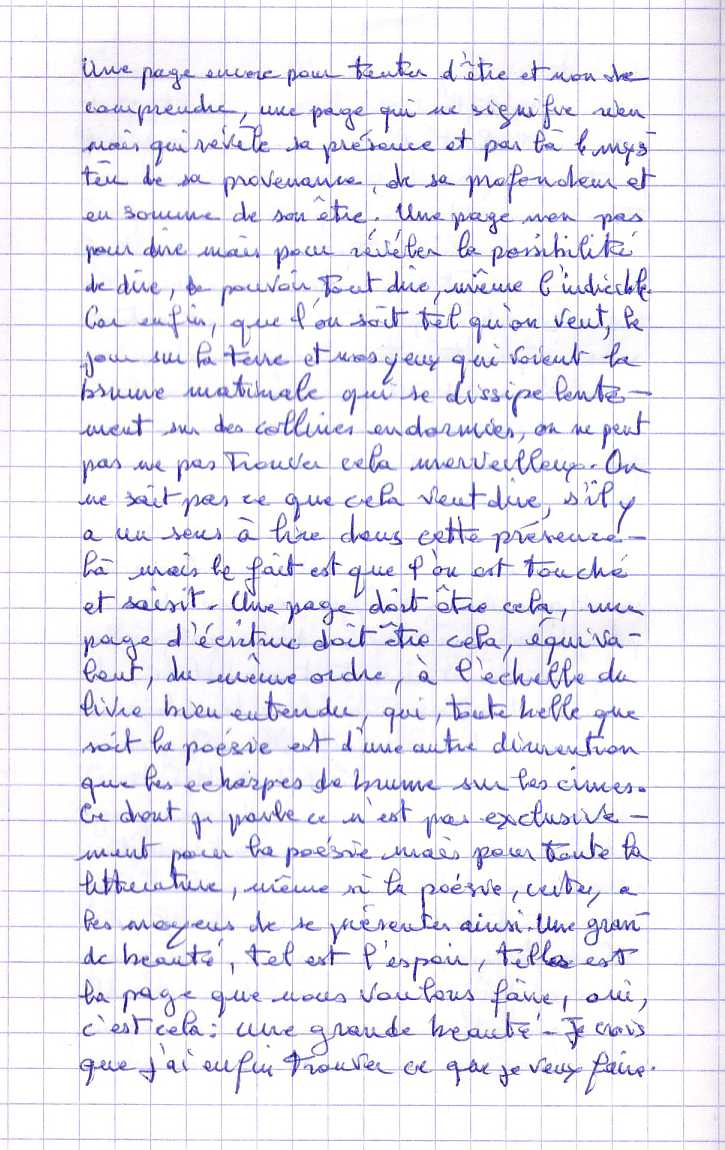 Une page encore pour tenter d'être et non de
comprendre, une page qui ne signifie rien
mais qui révèle sa présence et par là le mys
tère de sa provenance, de sa profondeur et
en somme de son être. Une page non pas
pour dire mais pour révéler la possibilité
de dire, de pouvoir tout dire, même l'indicible.
Car enfin, que l'on soit tel qu'on veut, le
jour sur la terre et nos yeux qui voient la
brume matinale qui se dissipe lente-
ment sur des collines endormies, on ne peut
pas ne pas trouver cela merveilleux. On
ne sait pas ce que cela veut dire, s'il y
a un sens à lire dans cette présence-
là mais le fait est que l'on est touché
et saisit. Une page doit être cela, une
page d'écriture doit être cela, équiva-
lent, du même ordre, à l'échelle du
livre bien entendu, qui, toute belle que
soit la poésie est d'une autre dimention
que les echarpes de brume sur les cimes.
Ce dont je parle ce n'est pas exclusive-
ment pour la poésie mais pour toute la
littérature, même si la poésie, certes, a
les moyens de se présenter ainsi. Une gran
de beauté, tel est l'espoir, telle est
la page que nous voulons faire, oui,
c'est cela : une grande beauté. Je crois
que j'ai enfin trouver ce que je veux faire.